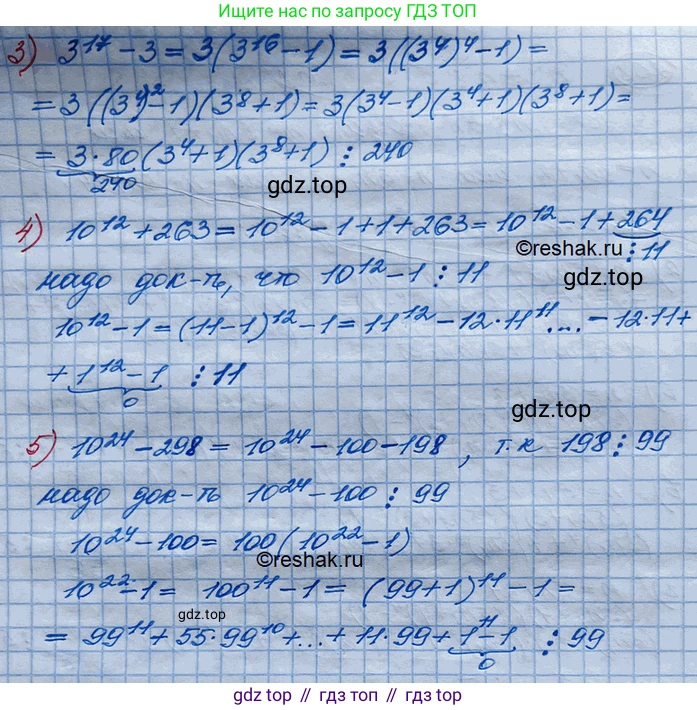 Ищите по запросу ГДЗ ТОП
3) 3¹⁷ − 3 = 3(3¹⁶ − 1) = 3((3⁴)⁴ − 1) =
= 3((3⁴)² − 1)(3⁸ + 1) = 3(3⁴ − 1)(3⁴ + 1)(3⁸ + 1) =
= 3·80(3⁴ + 1)(3⁸ + 1) ⋮ 240
240
gdz.top
4) 10¹² + 263 = 10¹² − 1 + 1 + 263 = 10¹² − 1 + 264
©reshak.ru
⋮ 11
надо док-ть, что 10¹² − 1 ⋮ 11
10¹² − 1 = (11 − 1)¹² − 1 = 11¹² − 12·11¹¹ ... − 12·11 +
+ 1¹² − 1 ⋮ 11
0
gdz.top
5) 10²⁴ − 298 = 10²⁴ − 100 − 198, т.к 198 ⋮ 99
надо док-ть 10²⁴ − 100 ⋮ 99
10²⁴ − 100 = 100(10²² − 1)
©reshak.ru
10²² − 1 = 100¹¹ − 1 = (99 + 1)¹¹ − 1 =
gdz.top
= 99¹¹ + 55·99¹⁰ + ... + 11·99 + 1¹¹ − 1 ⋮ 99
0
gdz top // гдз топ // gdz.top